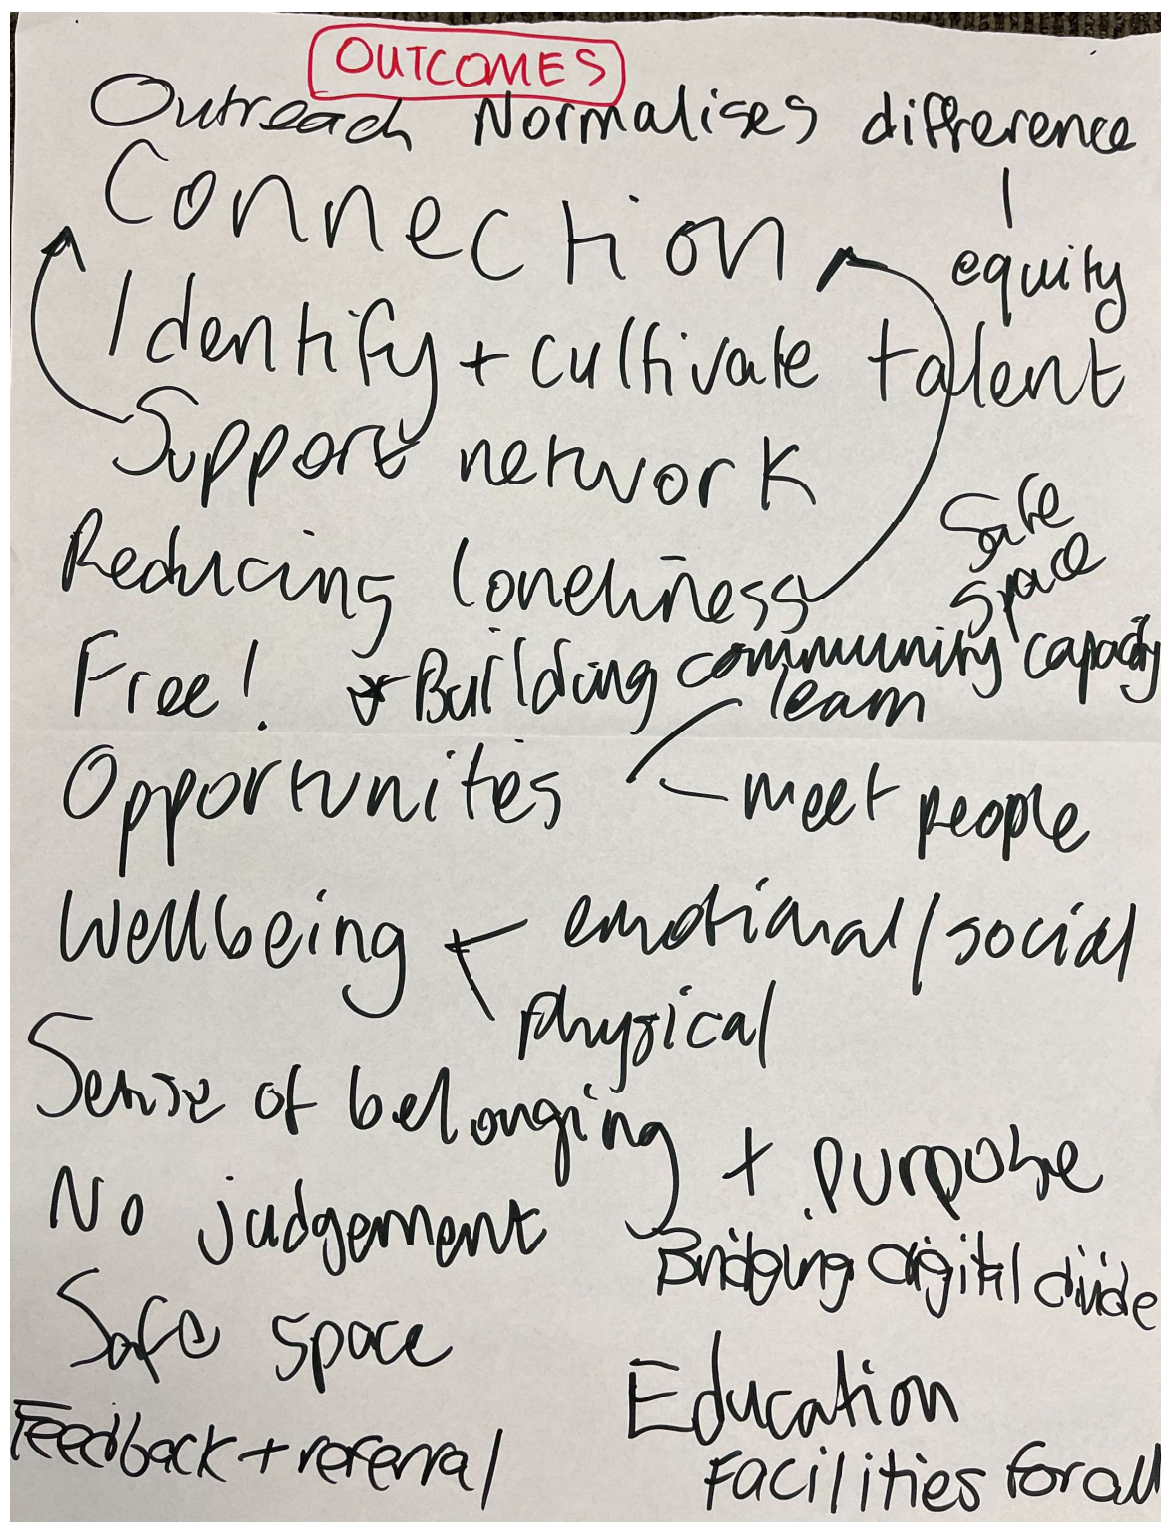 OUTCOMES
Outreach Normalises difference
equity
Connection
Identify + cultivate talent
Support network
Safe space
Reducing loneliness
Free! Building community capacity
Opportunities learn
meet people
Wellbeing emotional/social
physical
Sense of belonging + purpose
No judgement
Bridging digital divide
Safe space
Education
Feedback + referral
Facilities for all